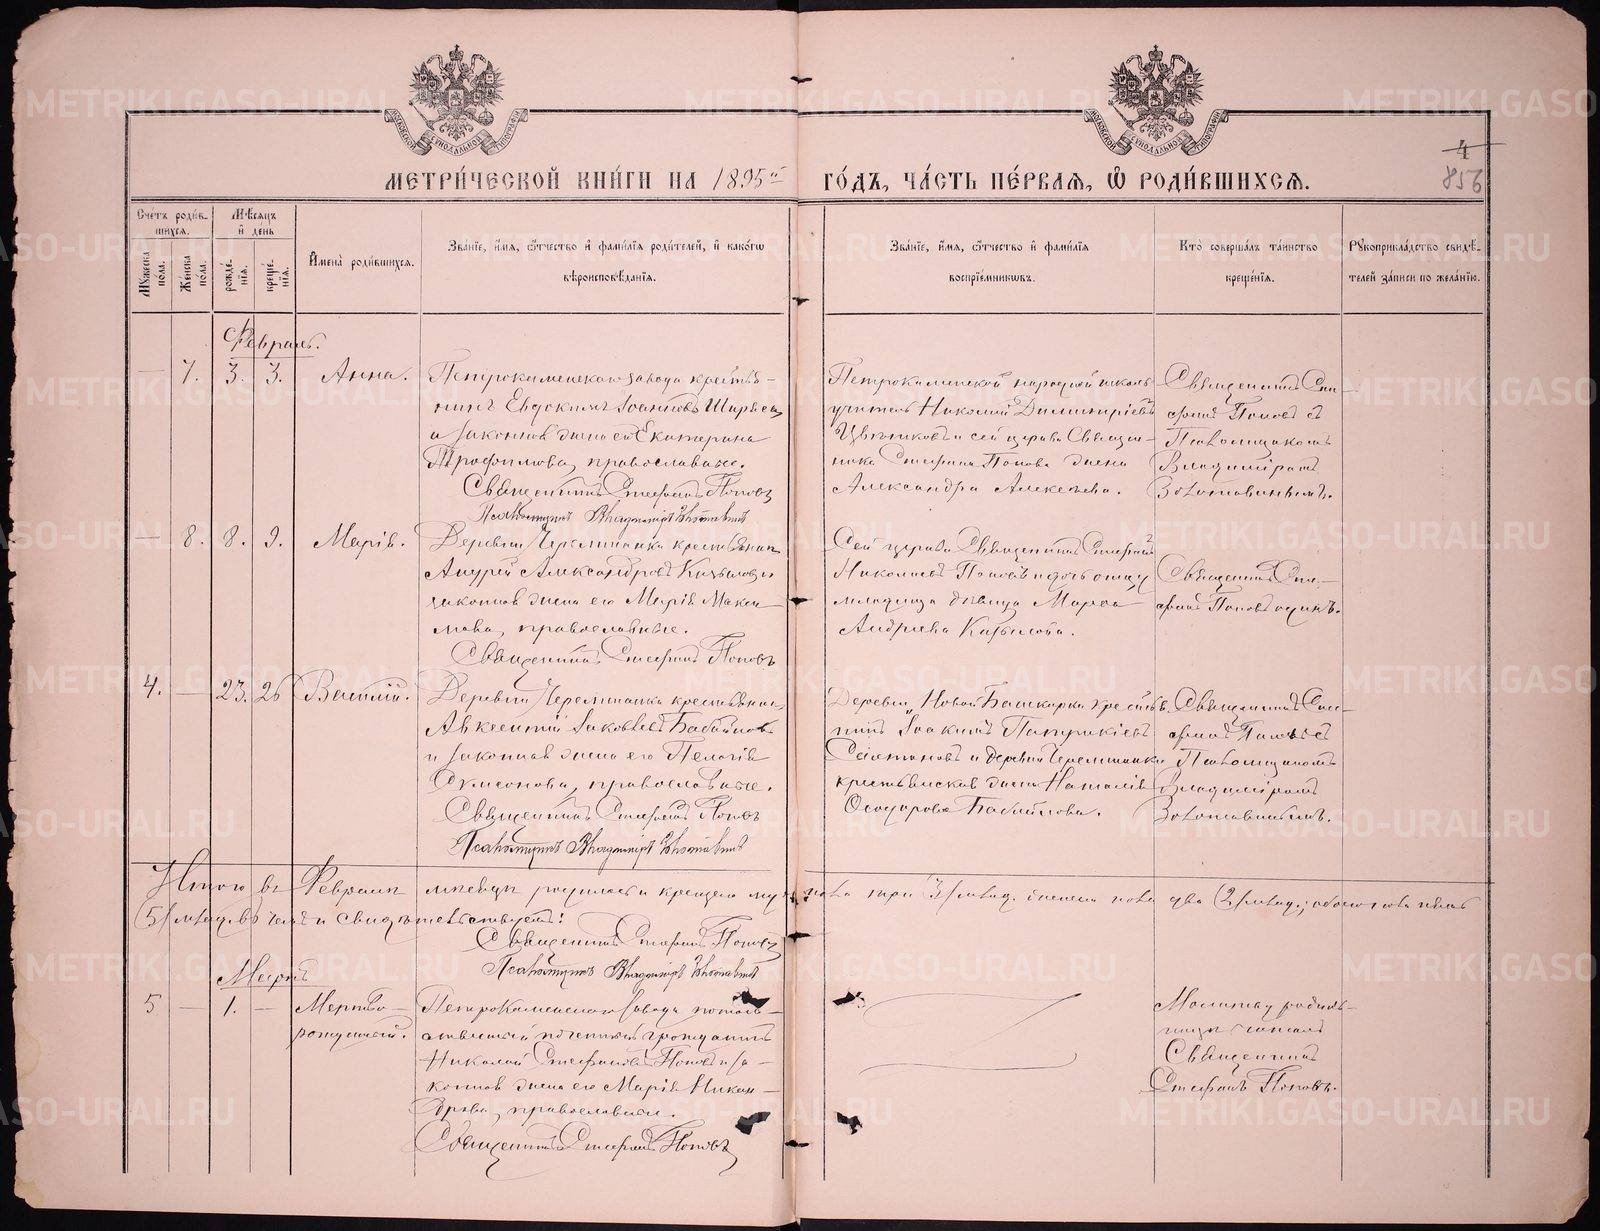 МОСКОВСКОЙ СѴНОДАЛЬНОЙ ТИПОГРАФІИ
МОСКОВСКОЙ СѴНОДАЛЬНОЙ ТИПОГРАФІИ
4
856
МЕТРИ́ЧЕСКОЙ КНИ́ГИ НА 1895й ГО́ДЪ, ЧА́СТЬ ПЕ́РВАЯ, Ѡ РОДИ́ВШИХСЯ.
Сче́тъ роди́в-
шихся.
Мꙋ́жеска пола.
Же́нска пола.
Мѣ́сяцъ
и҆ де́нь
рожде́нія.
креще́нія.
И҆мена̀ роди́вшихся.
Зва́ніе, и҆́мя, ѻ҆́тчество и҆ фами́лія роди́телей, и҆ како́гѡ
вѣроисповѣ́данія.
Зва́ніе, и҆́мя, ѻ҆́тчество и҆ фами́лія
воспріе́мниковъ.
Кто̀ соверша́лъ та́инство
креще́нія.
Рꙋкоприкла́дство свидѣ́-
телей за́писи по жела́нію.
Февраль.
— 7. 3. 3. Анна.
Петрокаменскаго завода кресть-
янинъ Евдокимъ Іоанновъ Ширяевъ
и законная жена его Екатерина
Трофимова, православные.
Священникъ Стефанъ Поповъ
Псаломщикъ Владимиръ
Петрокаменской народной школы
учитель Николай Димитріевъ
Цвѣтиковъ и сей церкви Священ-
ника Стефана Попова жена
Александра Алексѣева.
Священникъ Сте-
фанъ Поповъ съ
Псаломщикомъ
Владиміромъ
— 8. 8. 9. Марія.
Деревни Черемшанки крестьянинъ
Андрей Александровъ и
законная жена его Марія Макси-
мова, православные.
Священникъ Стефанъ Поповъ
Сей церкви Священникъ Стефанъ
Николаевъ Поповъ и
дѣвица
Андреева
Священникъ Сте-
фанъ Поповъ одинъ.
4. — 23. 26 Василій.
Деревни Черемшанки крестьянинъ
Авксентій Іаковлевъ Бабайловъ
и законная жена его Пелагія
православные.
Священникъ Стефанъ Поповъ
Псаломщикъ Владимиръ
Деревни Новой Башкарки крестья-
нинъ Іоакимъ Патрикіевъ
и деревни Черемшанки
крестьянская жена Наталія
Бабайлова.
Священникъ Сте-
фанъ Поповъ съ
Псаломщикомъ
Владиміромъ
Итого въ Февралѣ мѣсяцѣ родилось и крещено мужеска пола три /3/ женска пола два /2/ обоего пола пять
/5/ въ чемъ и свидѣтельствуемъ:
Священникъ Стефанъ Поповъ
Псаломщикъ Владимиръ
Мартъ
5 — 1. — Мертво-
рожденный.
Петрокаменскаго завода потом-
ственный почетный гражданинъ
Николай Стефановъ Поповъ и за-
конная жена его Марія Никан-
дрова, православные.
Священникъ Стефанъ Поповъ
Молитву родиль-
ницѣ читалъ
Священникъ
Стефанъ Поповъ.
METRIKI.GASO-URAL.RU